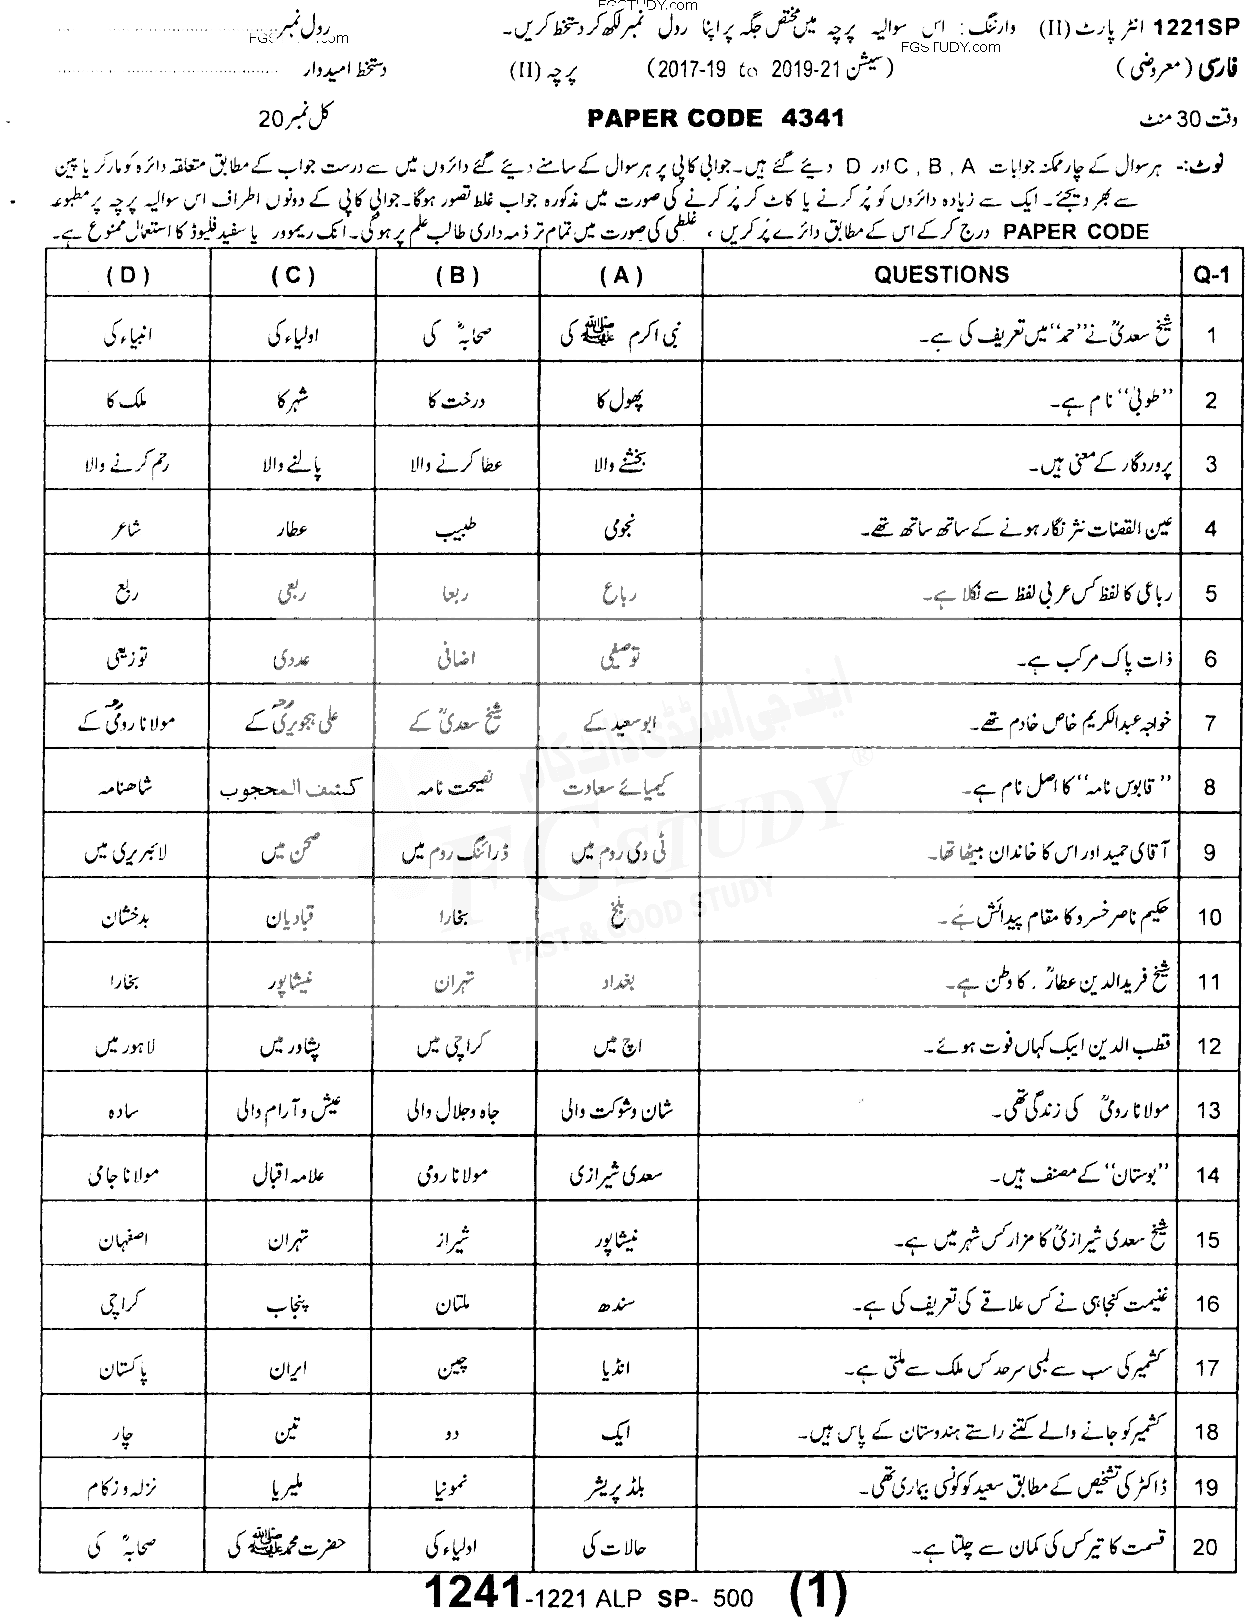 FGSTUDY.com
1221SP انٹر پارٹ (II) وارننگ: اس سوالیہ پرچہ میں مختص جگہ پر اپنا رول نمبر لکھ کر دستخط کریں۔ رول نمبر
FGSTUDY.com
فارسی (معروضی) (سیشن 2019-21 to 2017-19) پرچہ (II) دستخط امیدوار
وقت 30 منٹ PAPER CODE 4341 کل نمبر 20
نوٹ:- ہر سوال کے چار ممکنہ جوابات A , B , C اور D دیئے گئے ہیں۔ جوابی کاپی پر ہر سوال کے سامنے دیئے گئے دائروں میں سے درست جواب کے مطابق متعلقہ دائرہ کو مارکر یا پین
سے بھر دیجئے۔ ایک سے زیادہ دائروں کو پُر کرنے یا کاٹ کر پُر کرنے کی صورت میں مذکورہ جواب غلط تصور ہوگا۔ جوابی کاپی کے دونوں اطراف اس سوالیہ پرچہ پر مطبوعہ
PAPER CODE درج کر کے اس کے مطابق دائرے پُر کریں، غلطی کی صورت میں تمام تر ذمہ داری طالب علم پر ہو گی۔ انک ریموور یا سفید فلیوڈ کا استعمال ممنوع ہے۔
Q-1 QUESTIONS (A) (B) (C) (D)
1 شیخ سعدیؒ نے "حمد" میں تعریف کی ہے۔ نبی اکرم ﷺ کی صحابہؓ کی اولیاء کی انبیاء کی
2 "طوبیٰ" نام ہے۔ پھول کا درخت کا شہر کا ملک کا
3 پروردگار کے معنی ہیں۔ بخشنے والا عطا کرنے والا پالنے والا رحم کرنے والا
4 عین القضات نثر نگار ہونے کے ساتھ ساتھ تھے۔ نجومی طبیب عطار شاعر
5 رباعی کا لفظ کس عربی لفظ سے نکلا ہے۔ رباع ربعا ربعی ربع
6 ذات پاک مرکب ہے۔ توصیفی اضافی عددی توزیعی
7 خواجہ عبدالکریم خاص خادم تھے۔ ابوسعید کے شیخ سعدیؒ کے علی ہجویریؒ کے مولانا رومیؒ کے
8 "قابوس نامہ" کا اصل نام ہے۔ کیمیائے سعادت نصیحت نامہ کشف المحجوب شاھنامہ
9 آقای حمید اور اس کا خاندان بیٹھا تھا۔ ٹی وی روم میں ڈرائنگ روم میں صحن میں لائبریری میں
10 حکیم ناصر خسرو کا مقام پیدائش ہے۔ بلخ بخارا قبادیان بدخشان
11 شیخ فریدالدین عطارؒ کا وطن ہے۔ بغداد تہران نیشاپور بخارا
12 قطب الدین ایبک کہاں فوت ہوئے۔ اچ میں کراچی میں پشاور میں لاہور میں
13 مولانا رومیؒ کی زندگی تھی۔ شان و شوکت والی جاہ و جلال والی عیش و آرام والی سادہ
14 "بوستان" کے مصنف ہیں۔ سعدی شیرازی مولانا رومی علامہ اقبال مولانا جامی
15 شیخ سعدی شیرازیؒ کا مزار کس شہر میں ہے۔ نیشاپور شیراز تہران اصفہان
16 غنیمت کنجاہی نے کس علاقے کی تعریف کی ہے۔ سندھ ملتان پنجاب کراچی
17 کشمیر کی سب سے لمبی سرحد کس ملک سے ملتی ہے۔ انڈیا چین ایران پاکستان
18 کشمیر کو جانے والے کتنے راستے ہندوستان کے پاس ہیں۔ ایک دو تین چار
19 ڈاکٹر کی تشخیص کے مطابق سعید کو کونسی بیماری تھی۔ بلڈ پریشر نمونیا ملیریا نزلہ و زکام
20 قسمت کا تیر کس کی کمان سے چلتا ہے۔ حالات کی اولیاء کی حضرت محمد ﷺ کی صحابہؓ کی
ایف جی اسٹڈی ڈاٹ کام
FGSTUDY®
FAST & GOOD STUDY
1241-1221 ALP SP- 500 (1)